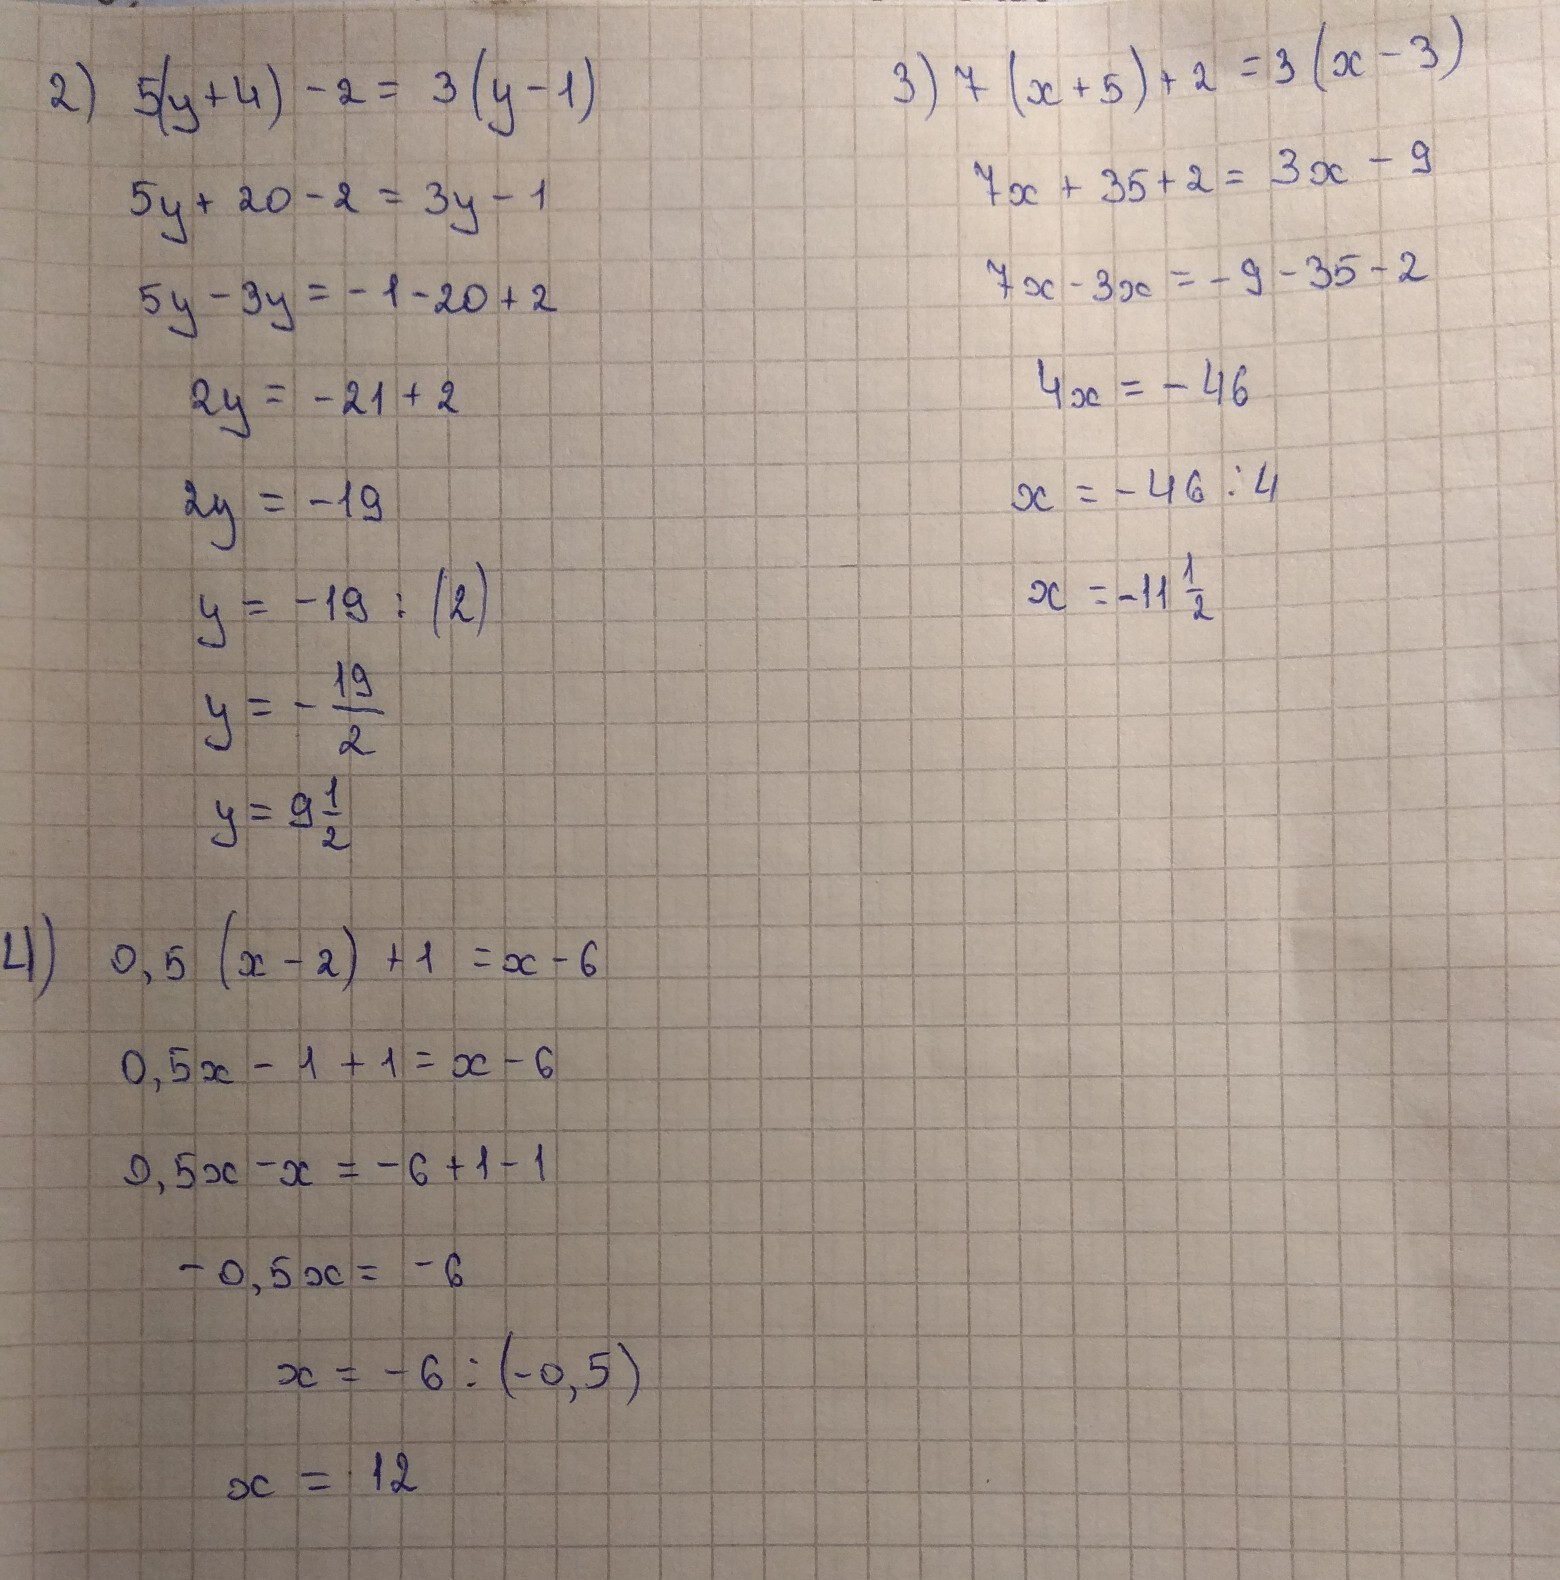 2) 5(y+4) - 2 = 3(y-1)
5y + 20 - 2 = 3y - 1
5y - 3y = -1 - 20 + 2
2y = -21 + 2
2y = -19
y = -19 : (2)
y = - 19/2
y = 9 1/2
3) 7 (x+5) + 2 = 3 (x - 3)
7x + 35 + 2 = 3x - 9
7x - 3x = -9 - 35 - 2
4x = -46
x = -46 : 4
x = -11 1/2
4) 0,5 (x - 2) + 1 = x - 6
0,5x - 1 + 1 = x - 6
0,5x - x = -6 + 1 - 1
-0,5x = -6
x = -6 : (-0,5)
x = 12